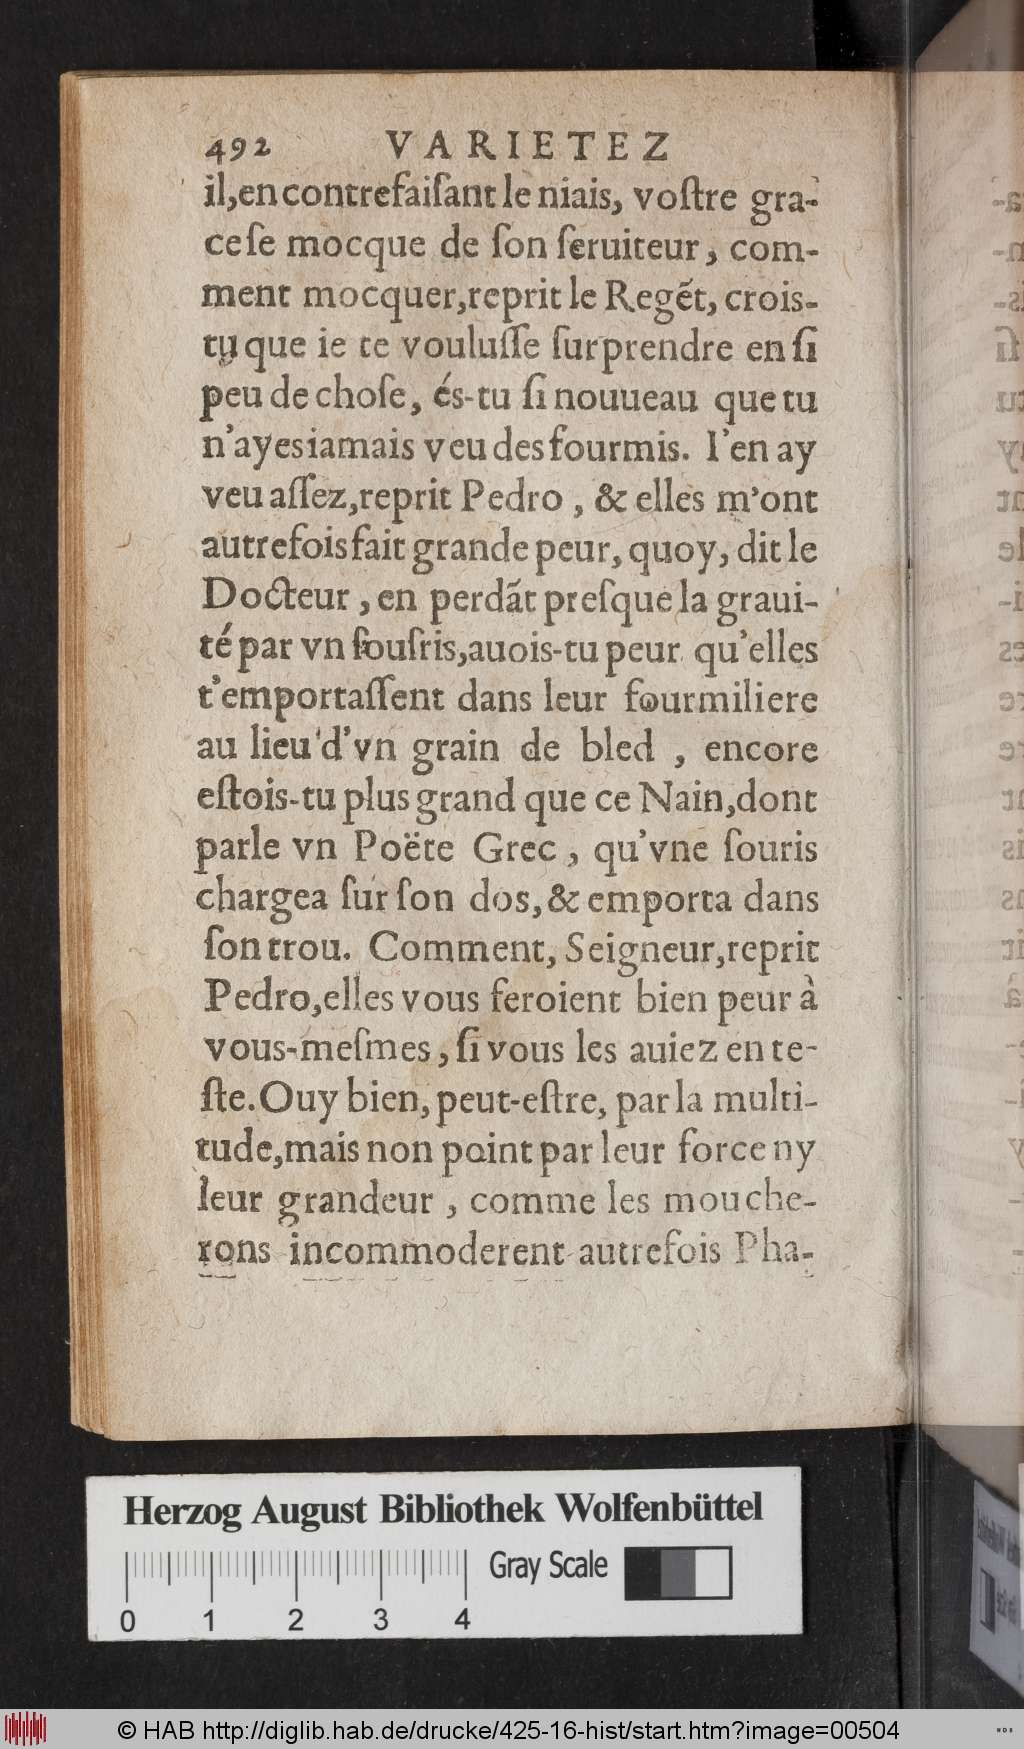 492 VARIETEZ
il,en contrefaiſant le niais, voſtre gra-
ce ſe mocque de ſon ſeruiteur, com-
ment mocquer,reprit le Regẽt, crois-
tu que ie te vouluſſe ſurprendre en ſi
peu de choſe, és-tu ſi nouueau que tu
n'ayes iamais veu des fourmis. I'en ay
veu aſſez,reprit Pedro, & elles m'ont
autrefois fait grande peur, quoy, dit le
Docteur, en perdãt preſque la graui-
té par vn ſouſris,auois-tu peur qu'elles
t'emportaſſent dans leur fourmiliere
au lieu d'vn grain de bled, encore
eſtois-tu plus grand que ce Nain,dont
parle vn Poëte Grec, qu'vne ſouris
chargea ſur ſon dos,& emporta dans
ſon trou. Comment, Seigneur,reprit
Pedro,elles vous feroient bien peur à
vous-meſmes, ſi vous les auiez en te-
ſte. Ouy bien, peut-eſtre, par la multi-
tude,mais non point par leur force ny
leur grandeur, comme les mouche-
rons incommoderent autrefois Pha-
Herzog August Bibliothek Wolfenbüttel
Gray Scale
0 1 2 3 4
© HAB http://diglib.hab.de/drucke/425-16-hist/start.htm?image=00504